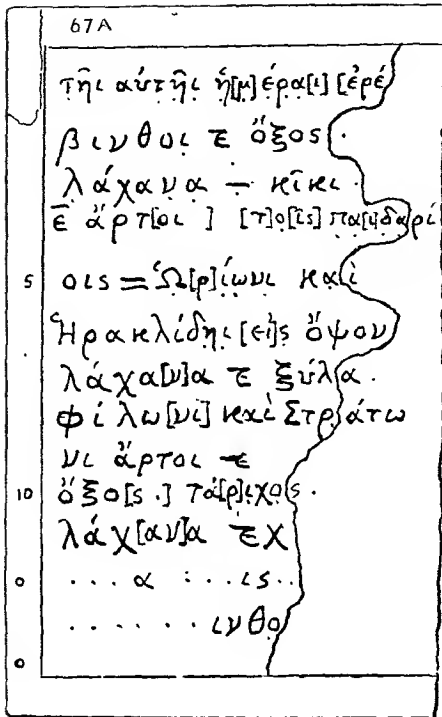 67A
τῆι αὐτῆι ἡ[μ]έρα[ι] [ἐρέ
βινθοι ε ὄξος .
λάχανα – κῖκι .
ε̄ ἄρτ[οι ] [τ]ο[ῖς] πα[ιδαρί
5 οις = Ὡ[ρ]ίωνι καὶ
Ἡρακλίδηι [εἰ]ς ὄψον
λάχα[ν]α ε ξύλα .
φίλω[νι] καὶ Στράτω
νι ἄρτοι ε
10 ὄξο[ς .] τά[ρ]ιχος .
λάχ[αν]α εχ
. . . α : . . ις . .
. . . . . . ινθο